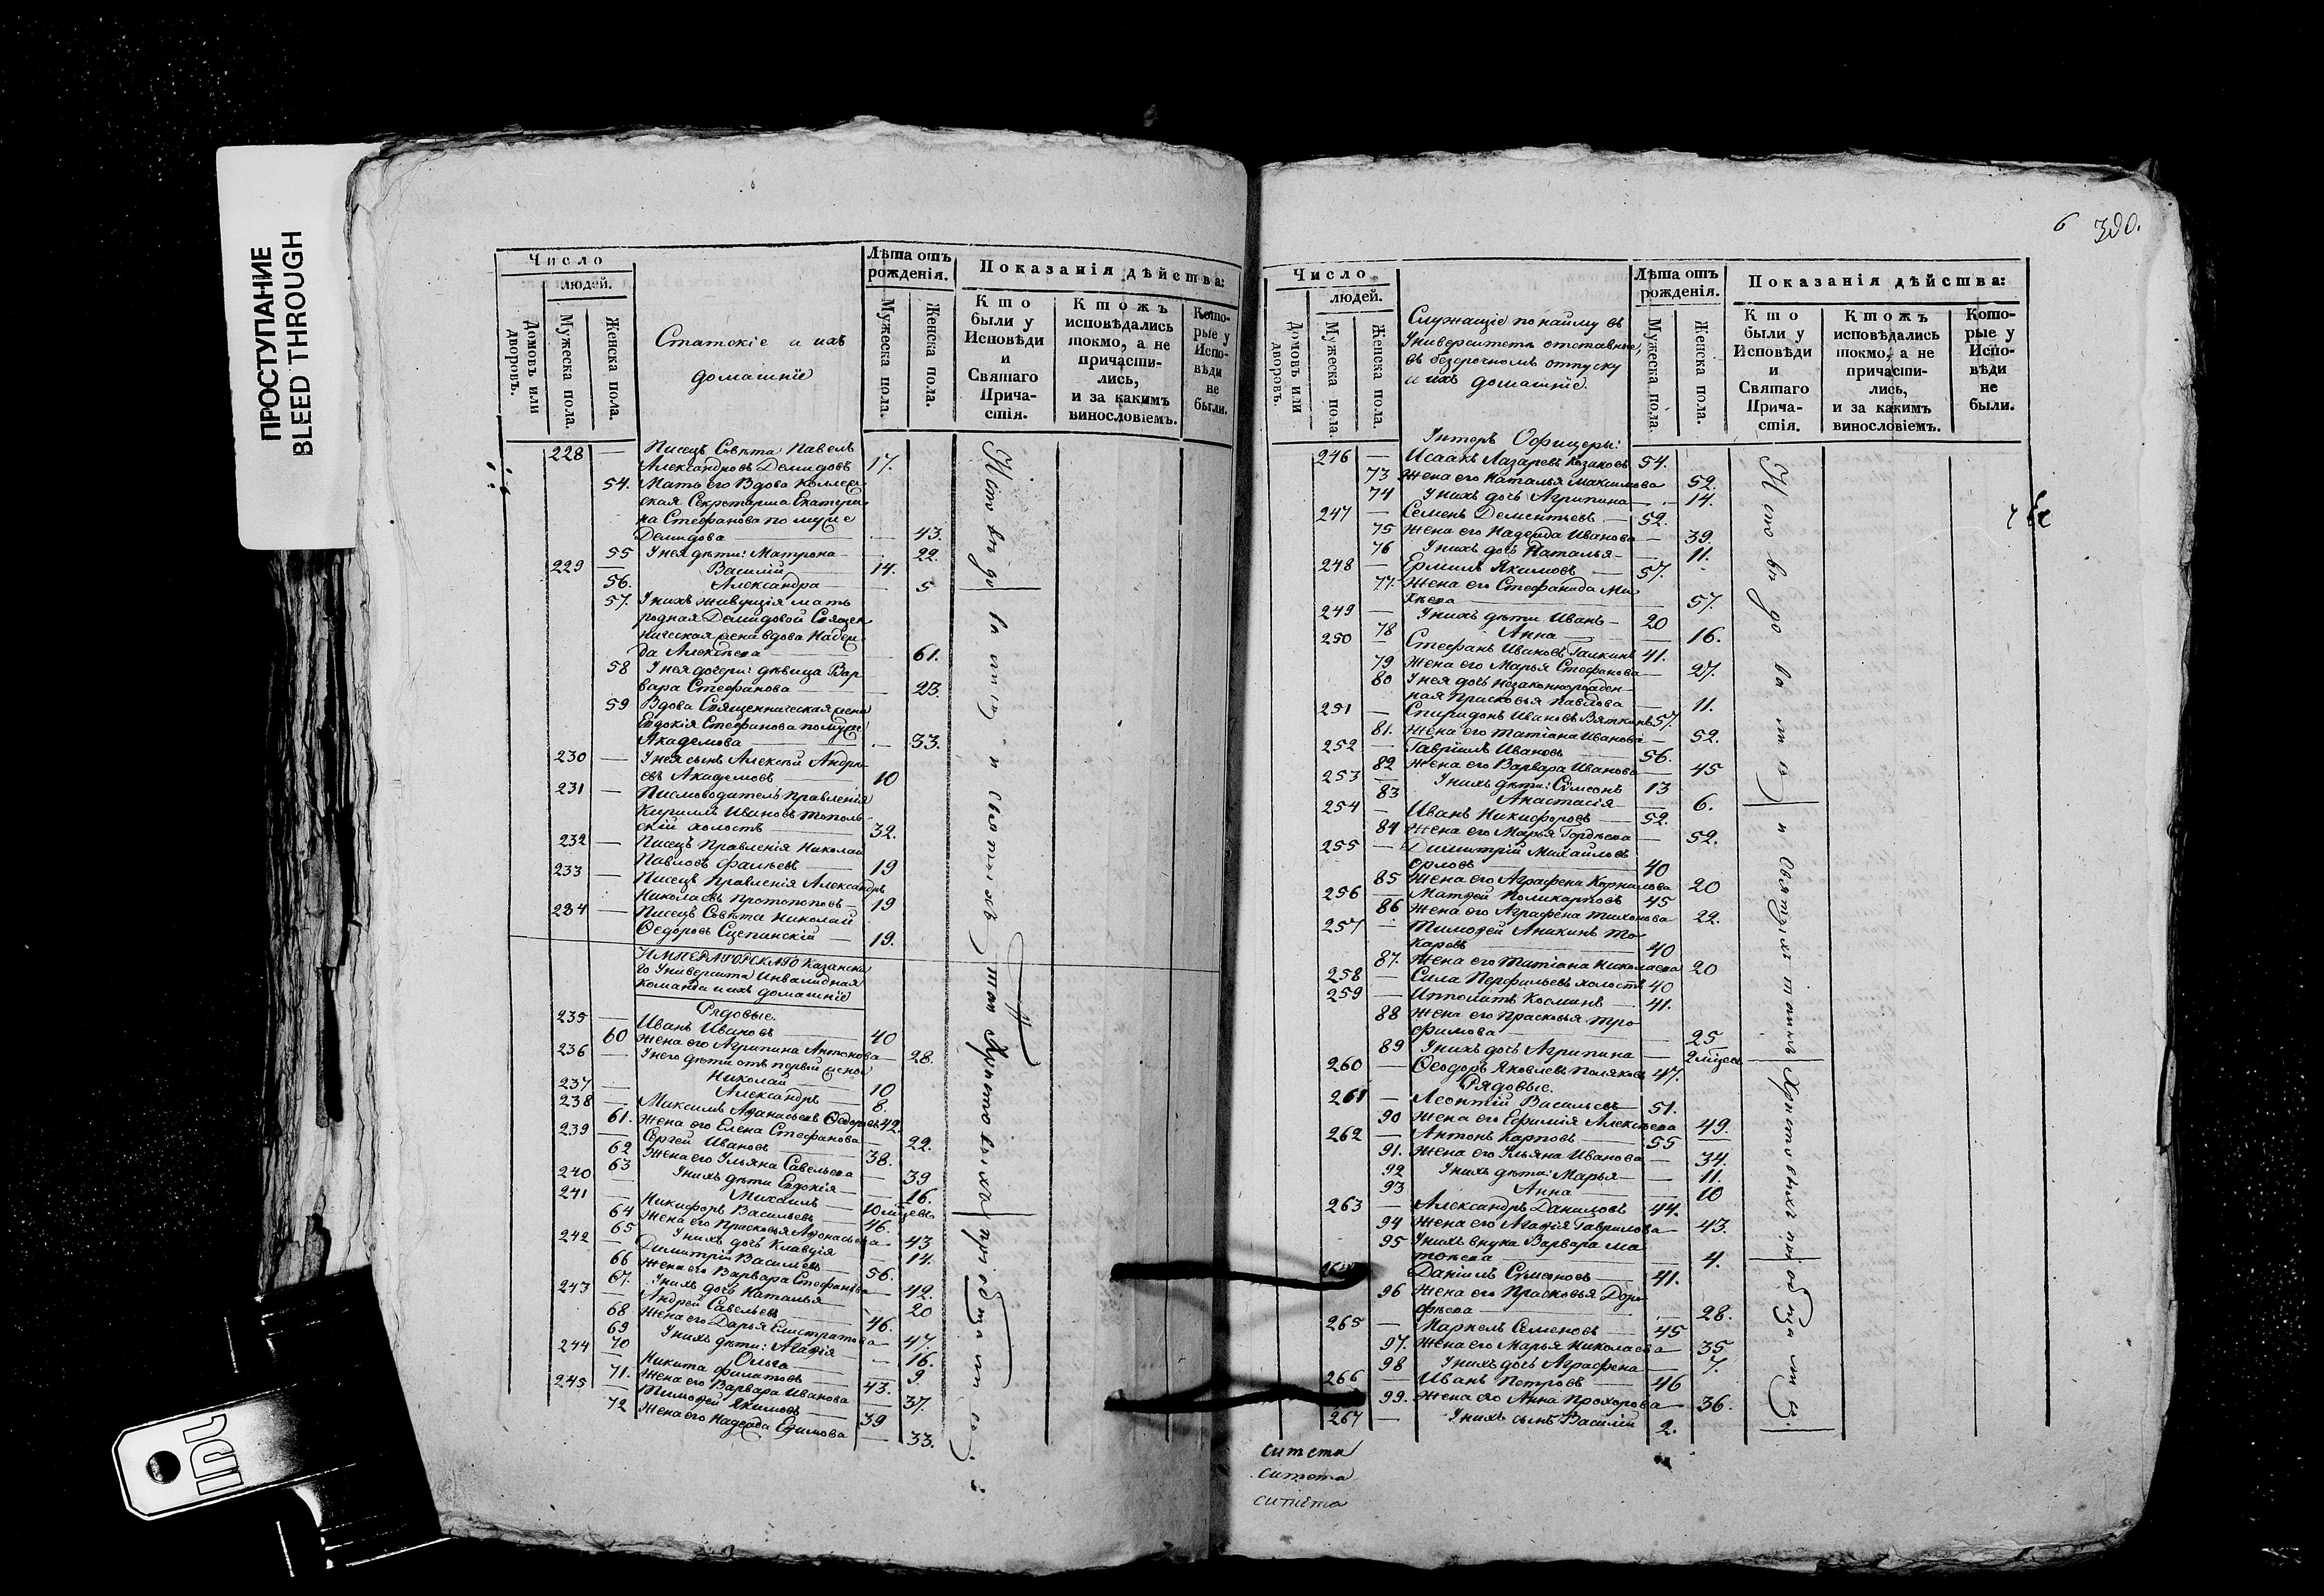 ПРОСТУПАНИЕ
BLEED THROUGH
Число
людей.
Домовъ или дворовъ.
Мужеска пола.
Женска пола.
Статскіе и ихъ
домашніе
Лѣта отъ
рожденія.
Мужеска пола.
Женска пола.
Показанія дѣйства:
Кто
были у
Исповѣди
и
Святаго
Прича-
стія.
Ктожъ
исповѣдались
токмо, а не
причасти-
лись,
и за какимъ
винословіемъ.
Кото-
рые у
Испо-
вѣди
не
были.
228 — Писецъ Совѣта Павелъ
Александровъ Демидовъ 17.
54. Мать его Вдова Коллеж-
ская Секретарша Екатери-
на Стефанова по мужѣ
Демидова — 43.
55 У нея дѣти: Матрона — 22.
229 — Василій 14.
56. Александра — 5
57. У нихъ живущія мать
родная Демидовой Священ
ническая жена вдова Надеж-
да Алексѣева — 61.
58 У нея дочери: дѣвица Вар
вара Стефанова — 23.
59 Вдова Священническая жена
Евдокія Стефанова по мужѣ
Академова — 33.
230 — У нея сынъ Алексѣй Андре-
евъ Академовъ — 10
231 — Писмоводитель Правленія
Кириллъ Ивановъ Тополь-
скій холостъ — 32.
232 — Писецъ Правленія Николай
Павловъ — 19
233 — Писецъ Правленія Александръ
Николаевъ Протопоповъ — 19
234 — Писецъ Совѣта Николай
Ѳедоровъ Сцепинскій — 19.
ИМПЕРАТОРСКАГО Казанска
го Университа Инвалидная
Команда и ихъ домашніе
Рядовые.
235 — Иванъ Ивановъ — 40
60 Жена его Агрипина Антонова — 28.
236 — У него дѣти отъ первой жены
Николай — 10
237 — Александръ — 8.
238 — Максимъ Аѳанасьевъ Ѳедоровъ 42.
61. Жена его Елена Стефанова — 22.
239 — Сергей Ивановъ — 38.
62 Жена его Ульяна Савельева — 39
63 У нихъ дѣти Евдокія — 16.
240 — Михаилъ — 10 мѣцевъ
241 — Никифоръ Васильевъ — 46.
64 Жена его Прасковья Аѳонасьева — 43
65 У нихъ дочь Клавдія — 14.
242 — Димитрій Васильевъ — 56.
66 Жена его Варвара Стефанова — 42.
67. У нихъ дочь Наталья — 20
243 — Андрей Савельевъ — 46.
68. Жена его Дарья Елистратова — 47.
69 У нихъ дѣти: Агаѳія — 16.
70 Ольга — 9.
244 — Никита Филатовъ — 43.
71. Жена его Варвара Иванова — 37.
245 — Тимоѳей Якимовъ — 39
72 Жена его Надежда Ефимова — 33.
6 380.
Число
людей.
Домовъ или дворовъ.
Мужеска пола.
Женска пола.
Служащіе по найму въ
Университетѣ отставные,
въ безсрочномъ отпуску
и ихъ домашніе.
Лѣта отъ
рожденія.
Мужеска пола.
Женска пола.
Показанія дѣйства:
Кто
были у
Исповѣди
и
Святаго
Прича-
стія.
Ктожъ
исповѣдались
токмо, а не
причасти-
лись,
и за какимъ
винословіемъ.
Кото-
рые у
Испо-
вѣди
не
были.
Унтеръ Офицеры:
246 — Исаакъ Лазаревъ Казаковъ 54.
73 Жена его Наталья Максимова 52.
74 У нихъ дочь Агрипина — 14.
247 — Семенъ Дементьевъ — 52.
75 Жена его Надежда Иванова — 39.
76 У нихъ дочь Наталья — 11.
248 — Ермилъ Якимовъ — 57.
77. Жена его Стефанида Ми
хѣева — 57.
249 — У нихъ дѣти Иванъ — 20
78 Анна — 16.
250 — Стефанъ Ивановъ Галкинъ 41.
79 Жена его Марья Стефанова — 27.
80 У нея дочь незаконнорожден-
ная Прасковья Павлова — 11.
251 — Спиридонъ Ивановъ Вяткинъ 57.
81. Жена его Татіана Иванова — 52.
252 — Гавріилъ Ивановъ — 56.
82 Жена его Варвара Иванова — 45
253 — У нихъ дѣти: Сѵмеонъ 13
83 Анастасія — 6.
254 — Иванъ Никифоровъ — 52.
84 Жена его Марья Гордѣева — 52.
255 — Димитрій Михайловъ
Орловъ — 40
85 Жена его Аграфена Корнилова 20
256 — Матѳей Поликарповъ 45
86 Жена его Аграфена Тихонова 22.
257 — Тимоѳей Аникинъ То-
каревъ — 40
87. Жена его Татіана Николаева 20
258 — Сила Перфильевъ холостъ 40
259 — Ипполитъ Косминъ — 41.
88 Жена его Прасковья Тро-
фимова — 25
89 У нихъ дочь Агрипина — 2 мѣцевъ
260 — Ѳеодоръ Яковлевъ Поляковъ 47.
Рядовые.
261 — Леонтій Васильевъ 51.
90 Жена его Ефимія Алексѣева 49.
262 — Антонъ Карповъ — 55
91. Жена его Ульяна Иванова — 34.
92 У нихъ дѣти: Марья — 11.
93 Анна — 10
263 — Александръ Даниловъ 44.
94 Жена его Агаѳія Гаврилова — 43.
95 У нихъ внука Варвара Ма
тѳеева — 4.
Даніилъ Сѵмеоновъ — 41.
96 Жена его Прасковья Доро-
фѣева — 28.
265 — Маркелъ Семеновъ 45
97. Жена его Марья Николаева — 35
98 У нихъ дочь Аграфена — 7.
266 — Иванъ Петровъ — 46
99. Жена его Анна Прохорова — 36.
267 — У нихъ сынъ Василій 2.